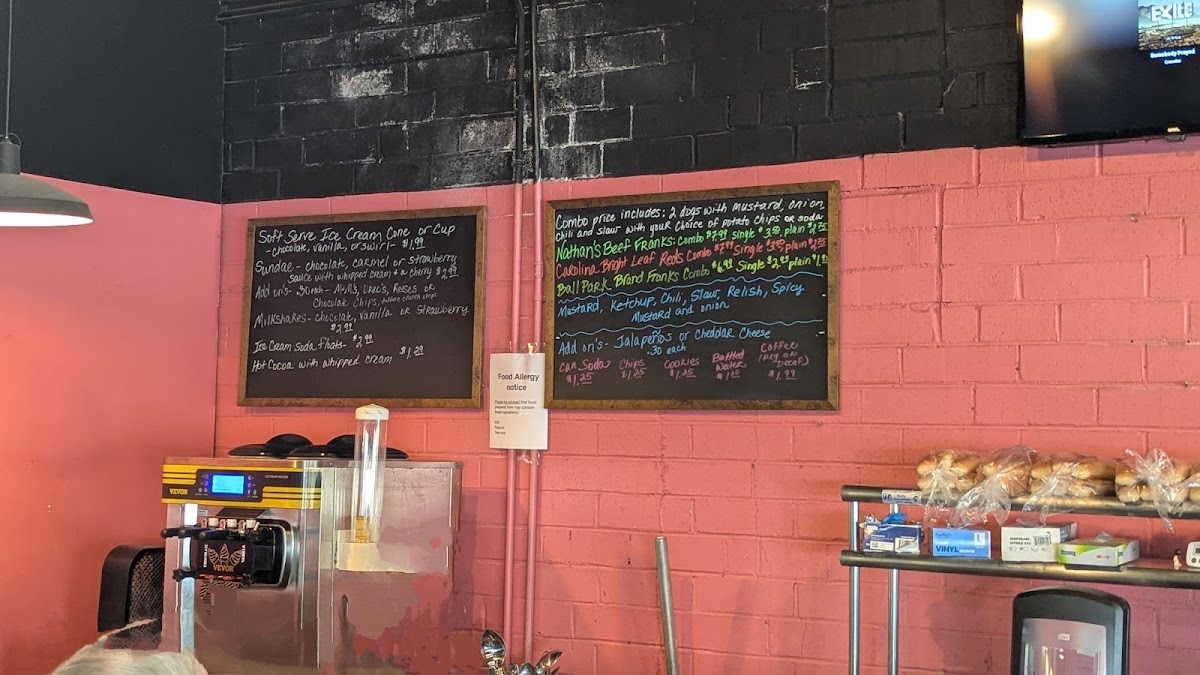 Soft Serve Ice Cream Cone or Cup
- chocolate, vanilla, or swirl - $1.99
Sundae - chocolate, carmel or strawberry
sauce with whipped cream + a cherry $2.99
Add on's - .50 each - M+M's, Oreo's, Reses or
Chocolate Chips,
Milkshakes - chocolate, vanilla or strawberry
$2.99
Ice Cream Soda Floats - $2.99
Hot Cocoa with whipped cream $1.29
Combo price includes: 2 dogs with mustard, onion
chili and slaw with your choice of potato chips or soda
Nathan's Beef Franks: Combo $7.99 Single $3.50, plain $2.75
Carolina Bright Leaf Reds Combo $7.99 Single $3.50, plain $2.75
Ball Park Brand Franks Combo $6.99 Single $2.99 plain
Mustard, Ketchup, Chili, Slaw, Relish, Spicy
Mustard and onion
Add on's - Jalapeños or Cheddar Cheese
.30 each
Can Soda $1.25
Chips $1.25
Cookies $1.25
Bottled Water $1.00
Coffee (Reg or Decaf) $1.99
Food Allergy
notice
Please be advised that food
prepared here may contain
these ingredients:
Milk
Peanuts
Tree nuts
EXILE
Somebody Prayed
Crowder
VEVOR
VEVOR
VINYL